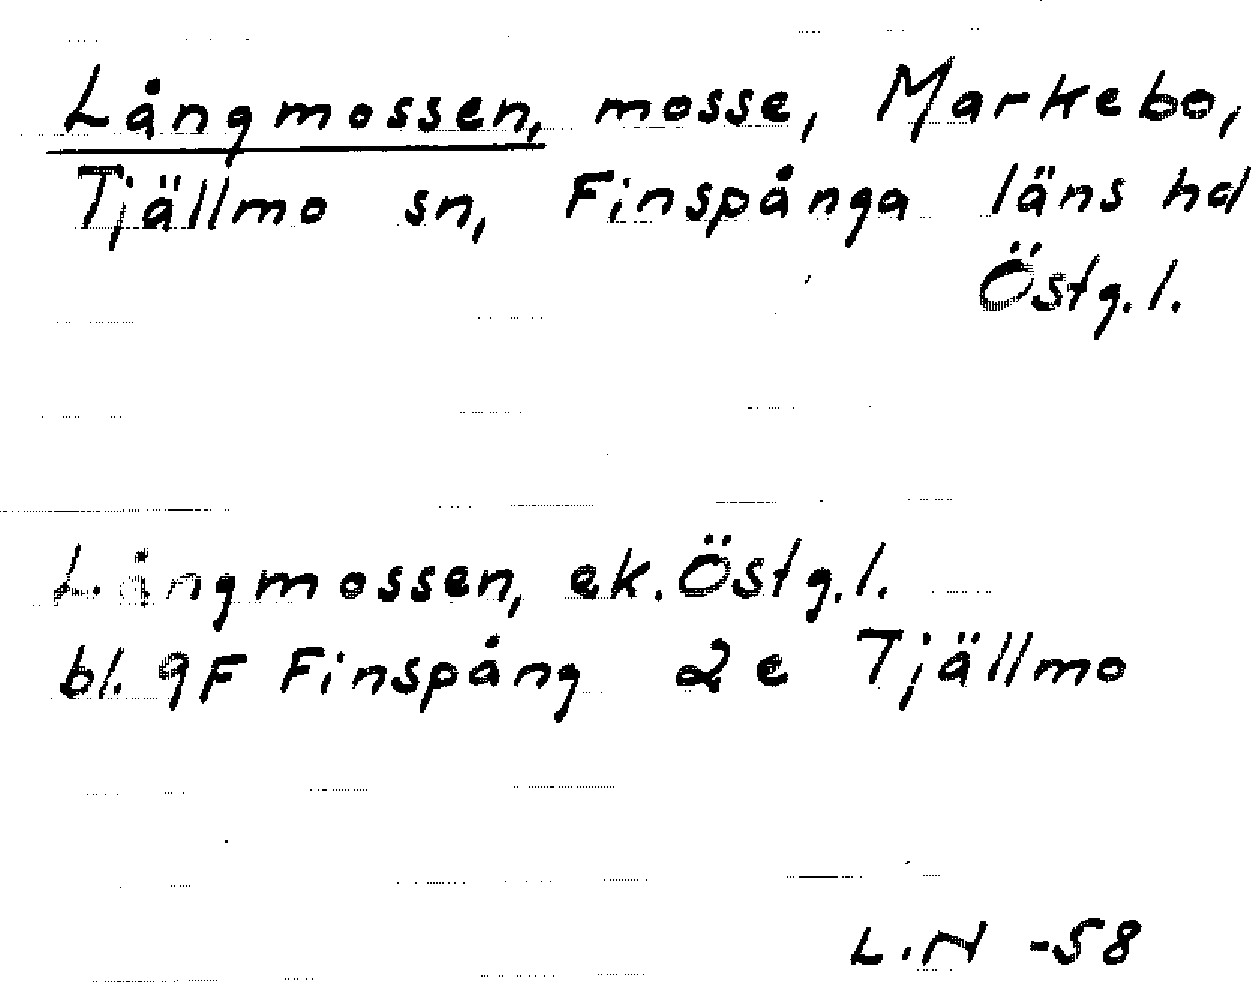 Långmossen, mosse, Markebo,
Tjällmo sn, Finspånga läns hd
Östg.l.
Långmossen, ek. Östg.l.
bl. 9F Finspång 2e Tjällmo
L.N -58